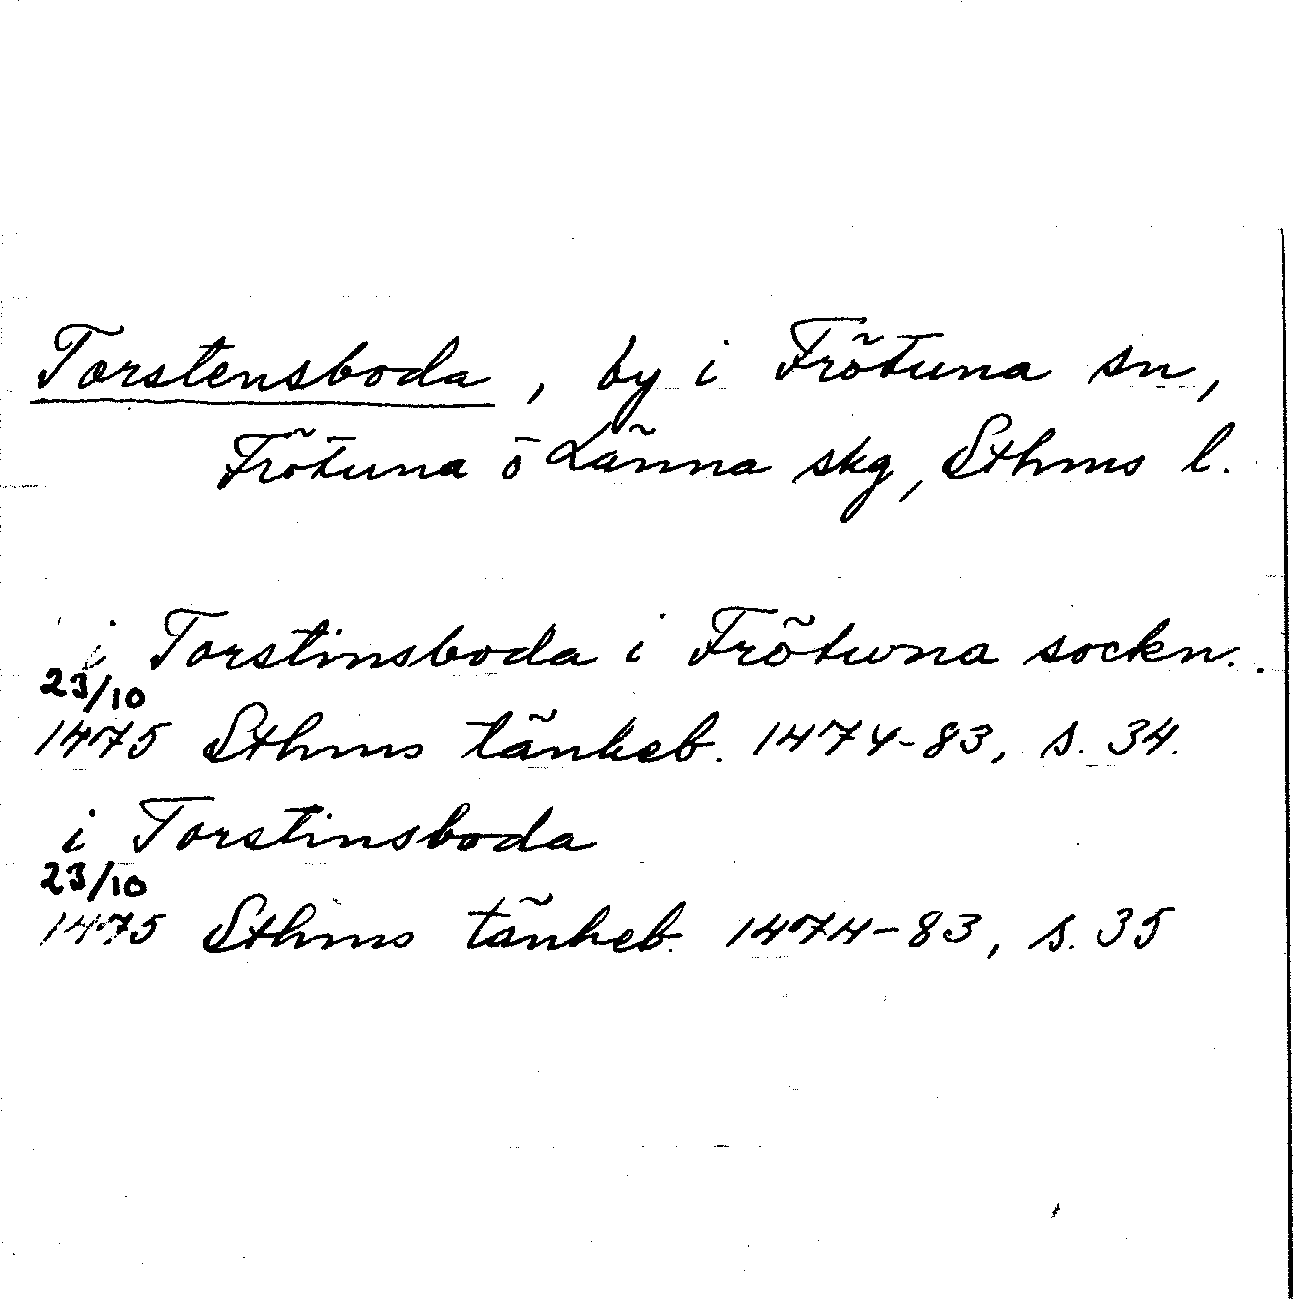 Torstensboda, by i Frötuna sn,
Frötuna o Länna skg, Sthms l.
i Torstinsboda i Frötuna sockn.
23/10
1475 Sthms tänkeb. 1474-83, s. 34.
i Torstinsboda
23/10
1475 Sthms tänkeb. 1474-83, s. 35